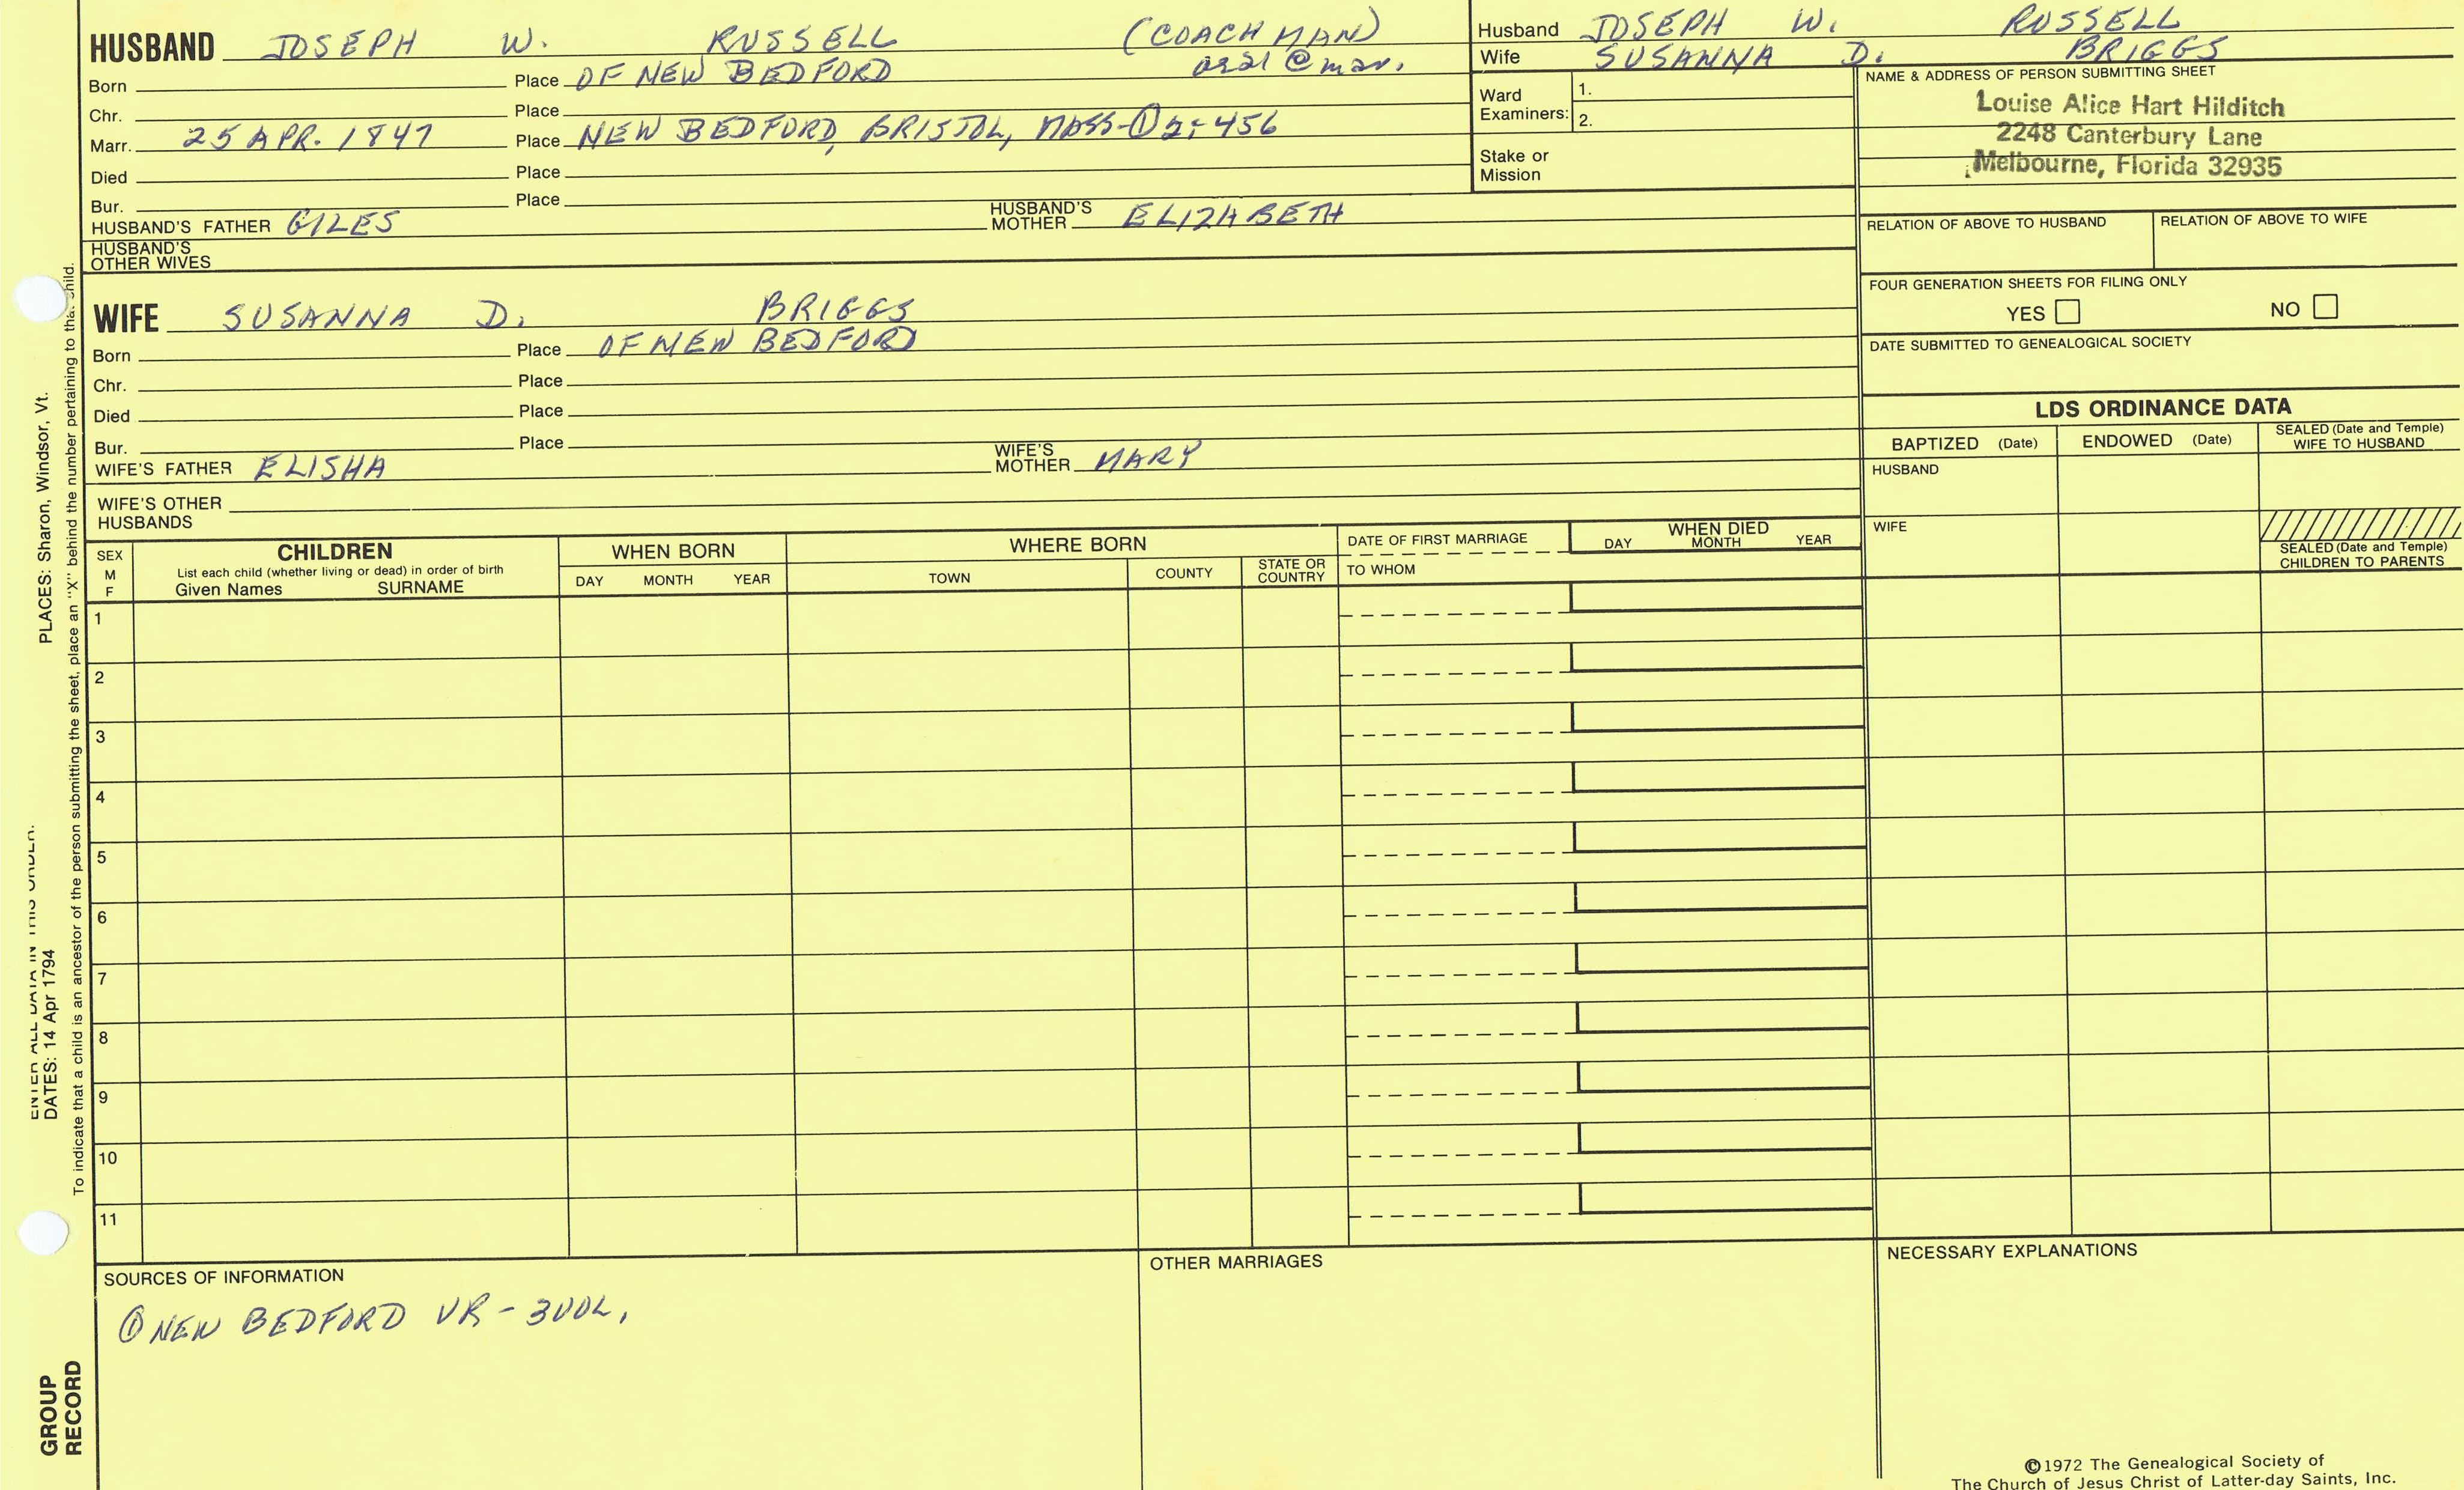 HUSBAND JOSEPH W. RUSSELL (COACHMAN)
Born Place OF NEW BEDFORD @ mar.
Chr. Place
Marr. 25 APR. 1847 Place NEW BEDFORD, BRISTOL, MASS-① 2:456
Died Place
Bur. Place
HUSBAND'S FATHER GILES HUSBAND'S MOTHER ELIZABETH
HUSBAND'S OTHER WIVES
Husband JOSEPH W. RUSSELL
Wife SUSANNA D. BRIGGS
Ward Examiners: 1.
2.
Stake or Mission
NAME & ADDRESS OF PERSON SUBMITTING SHEET
Louise Alice Hart Hilditch
2248 Canterbury Lane
Melbourne, Florida 32935
RELATION OF ABOVE TO HUSBAND RELATION OF ABOVE TO WIFE
FOUR GENERATION SHEETS FOR FILING ONLY
YES NO
DATE SUBMITTED TO GENEALOGICAL SOCIETY
WIFE SUSANNA D. BRIGGS
Born Place OF NEW BEDFORD
Chr. Place
Died Place
Bur. Place
WIFE'S FATHER ELISHA WIFE'S MOTHER MARY
WIFE'S OTHER HUSBANDS
LDS ORDINANCE DATA
BAPTIZED (Date) ENDOWED (Date) SEALED (Date and Temple) WIFE TO HUSBAND
HUSBAND
WIFE
SEALED (Date and Temple) CHILDREN TO PARENTS
SEX M F
CHILDREN
List each child (whether living or dead) in order of birth
Given Names SURNAME
WHEN BORN
DAY MONTH YEAR
WHERE BORN
TOWN COUNTY STATE OR COUNTRY
DATE OF FIRST MARRIAGE
TO WHOM
WHEN DIED
DAY MONTH YEAR
1
2
3
4
5
6
7
8
9
10
11
SOURCES OF INFORMATION
① NEW BEDFORD VR - 3VOL.
OTHER MARRIAGES
NECESSARY EXPLANATIONS
©1972 The Genealogical Society of
The Church of Jesus Christ of Latter-day Saints, Inc.
ENTER ALL DATA IN THIS ORDER.
DATES: 14 Apr 1794 PLACES: Sharon, Windsor, Vt.
To indicate that a child is an ancestor of the person submitting the sheet, place an "X" behind the number pertaining to that child.
GROUP
RECORD